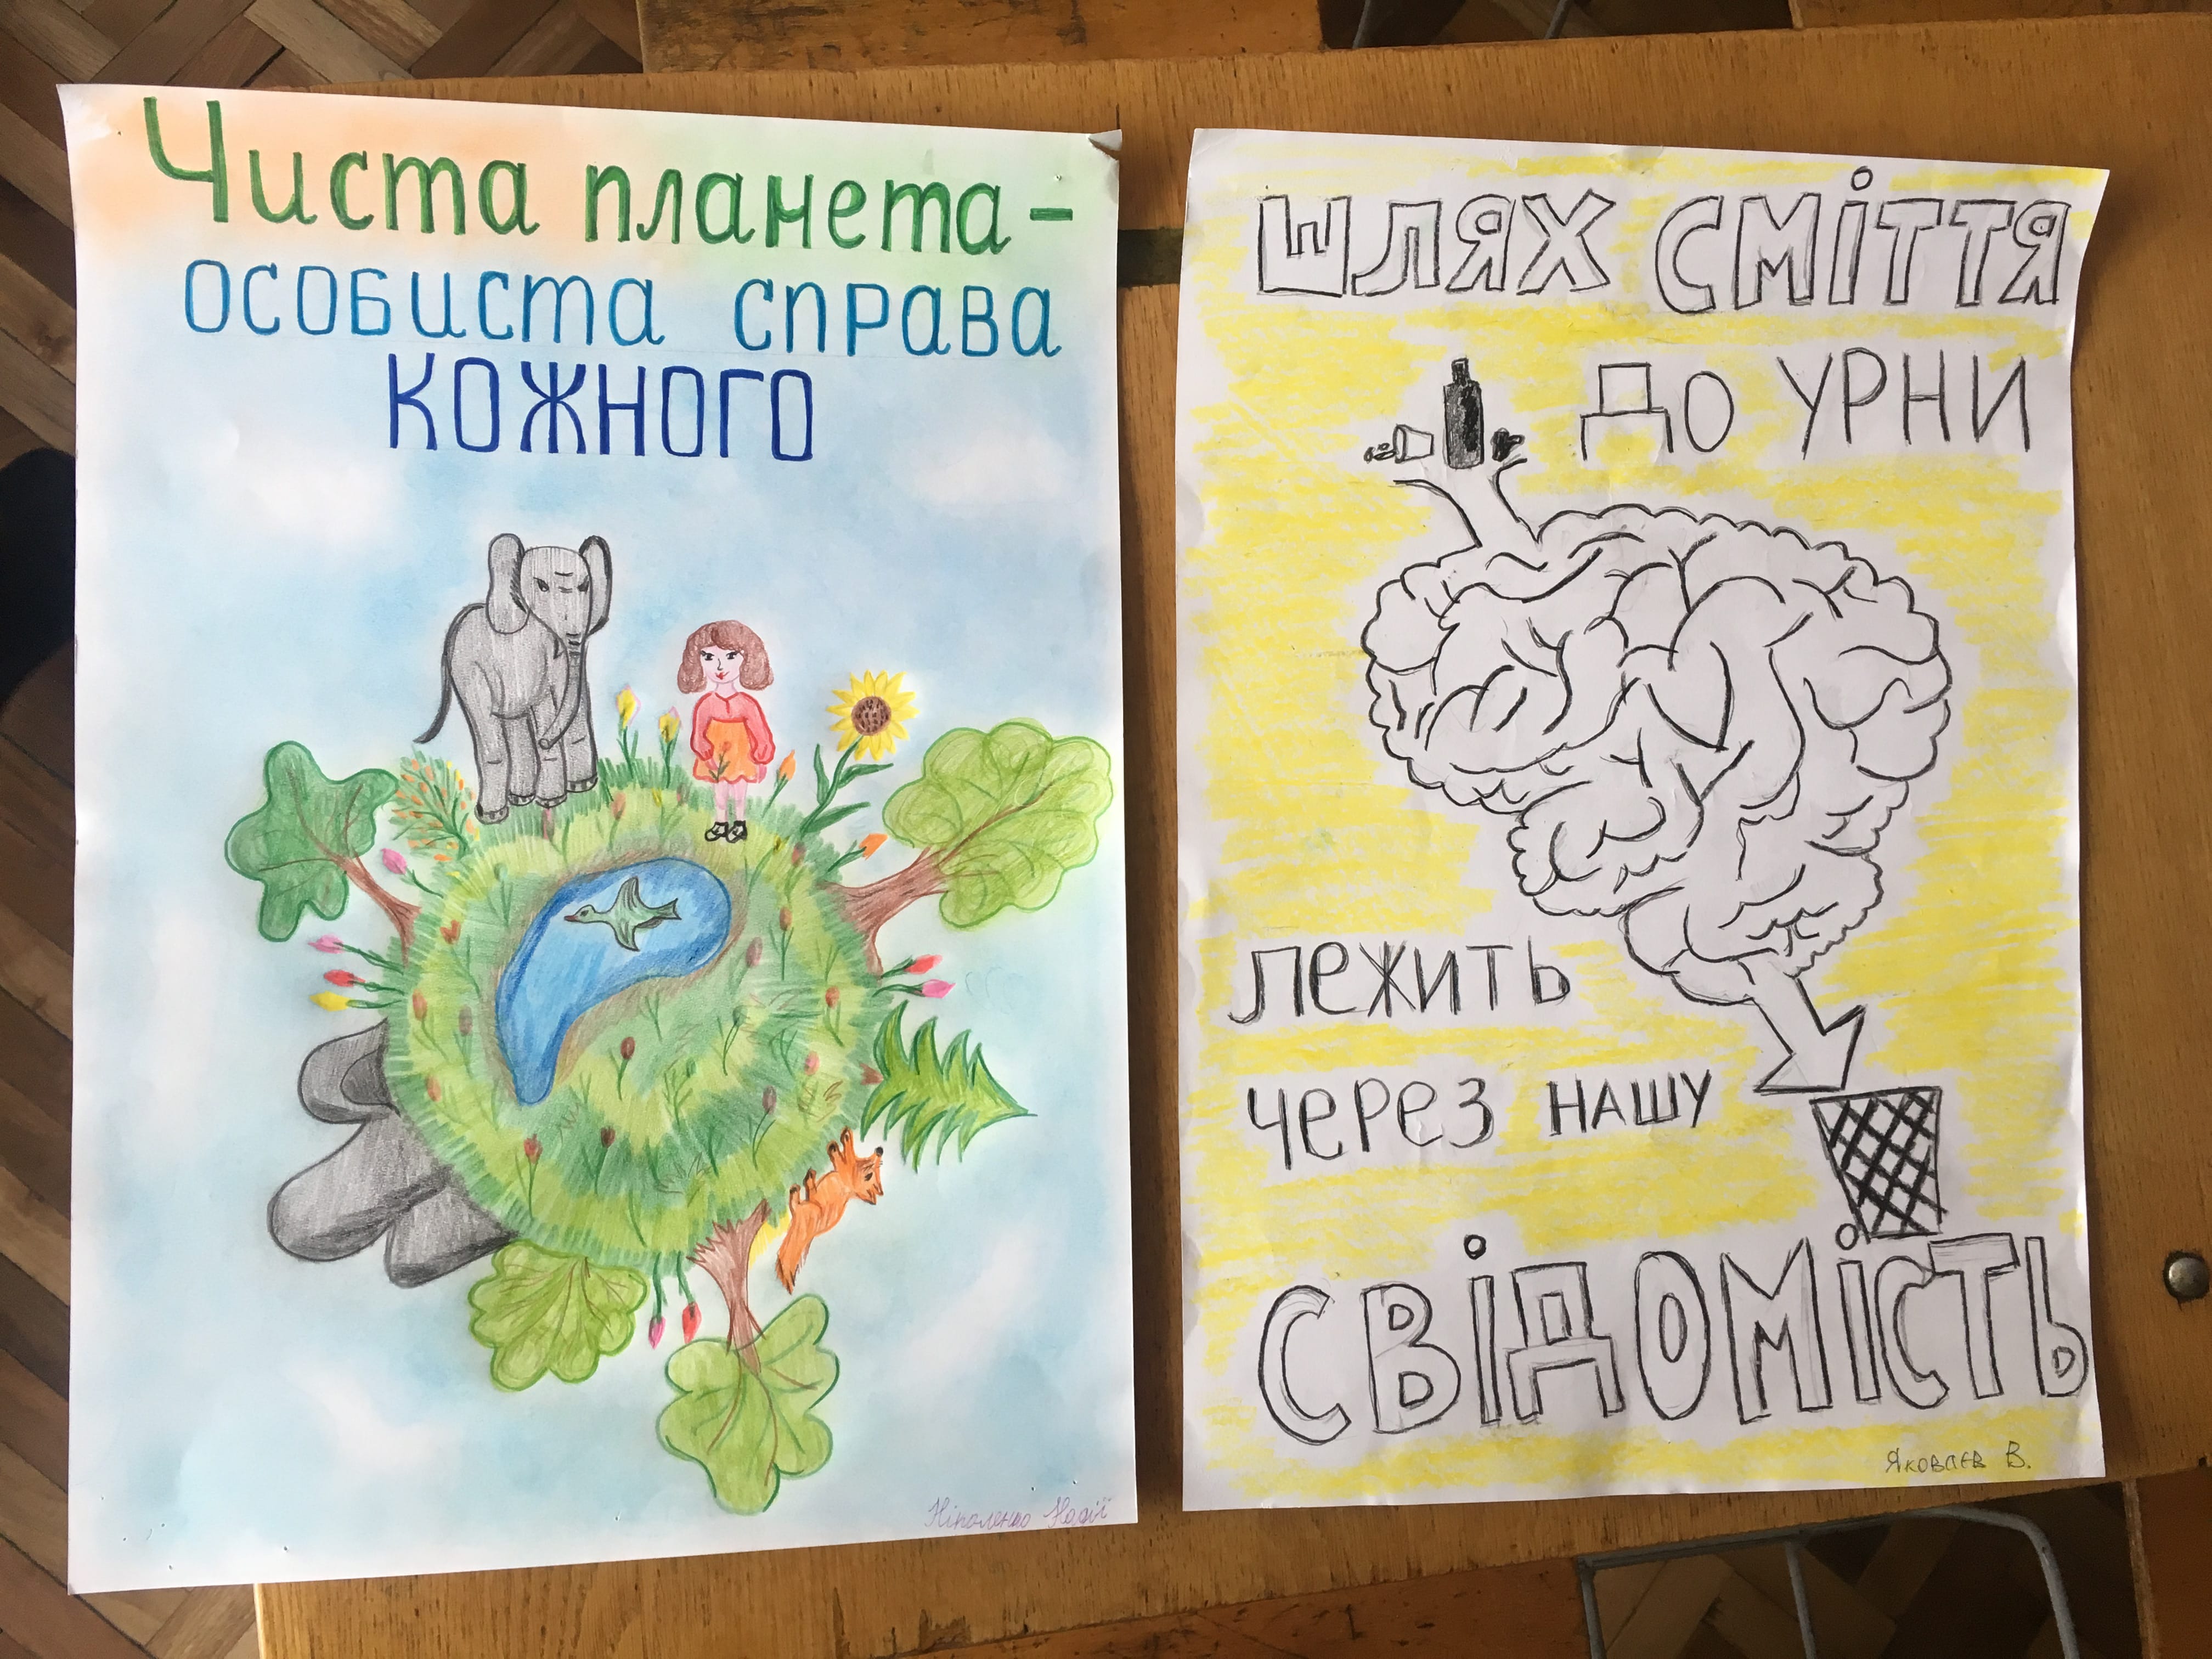 Чиста планета -
особиста справа
кожного
Надії
ШЛЯХ СМІТТЯ
ДО УРНИ
ЛЕЖИТЬ
ЧЕРЕЗ НАШУ
СВІДОМІСТЬ
Яковлєв В.